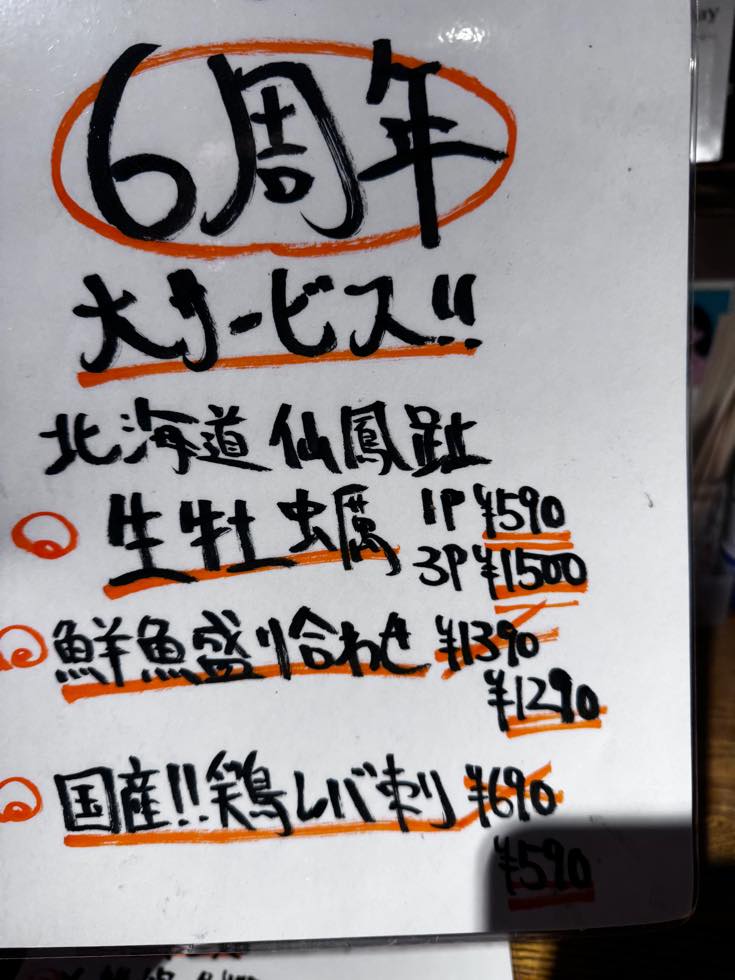 6周年
大サービス!!
北海道 仙鳳趾
生牡蠣 1P ¥590
3P ¥1500
鮮魚盛り合わせ ¥1390
¥1290
国産!!鶏レバ刺り ¥690
¥590